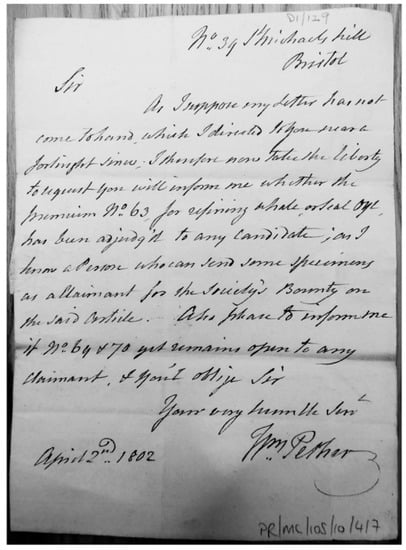 D1/129
No. 39 St Michaels hill
Bristol
Sir
As I suppose my Letter has not
come to hand, which I directed to You near a
fortnight since, I therefore now take the liberty
to request You will inform me whether the
premium No. 63, for refining whale, or seal Oyl,
has been adjudg'd to any Candidate; as I
know a Person who can send some specimens
as a Claimant for the Society's Bounty on
the said Article. Also please to inform me
if No. 69 & 70 yet remains open to any
Claimant, & You'l oblige Sir
Your very humble Servt
Wm Pether
April 2nd. 1802
PR/MC/105/10/417